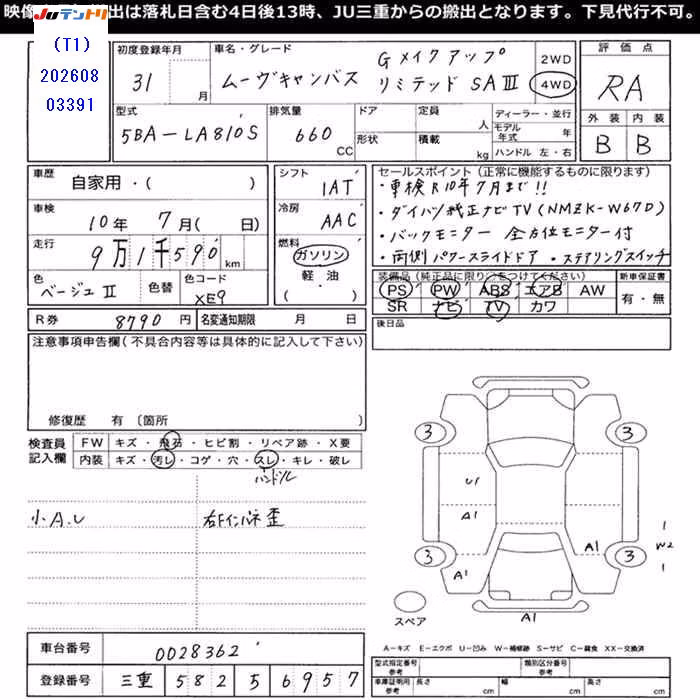 出は落札日含む4日後13時、JU三重からの搬出となります。下見代行不可。
JUテントリ
(T1)
202608
03391
初度登録年月
31 月
車名・グレード
ムーヴキャンバス
Gメイクアップ
リミテッド SAⅢ
2WD
4WD
評価点
RA
外装 内装
B B
型式
5BA-LA810S
排気量
660 CC
ドア
形状
定員 人
積載 kg
ディーラー・並行
モデル年式 年
ハンドル 左・右
車歴
自家用・( )
車検
10年 7月( 日)
走行
9万1千590 km
色
ベージュⅡ
色替
色コード
XE9
シフト
IAT
冷房
AAC
燃料
ガソリン
軽・油
( )
セールスポイント(正常に機能するものに限ります)
・車検R10年7月まで!!
・ダイハツ純正ナビTV(NMZK-W67D)
・バックモニター 全方位モニター付
・両側パワースライドドア ・ステアリングスイッチ
装備品(純正品に限り○をつけてください)
PS PW ABS エアB AW
SR ナビ TV カワ
新車保証書
有・無
R券 8790円 名変通知期限 月 日
後日品
注意事項申告欄(不具合内容等は具体的に記入して下さい)
修復歴 有〔箇所
検査員記入欄
FW キズ・飛石・ヒビ割・リペア跡・X要
内装 キズ・汚レ・コゲ・穴・スレ・キレ・破レ
ハンドル
小A.U
右Fインパネ歪
3
3
U1
A1
3
3
A1
A1
A1
1
W2
1
スペア
A-キズ E-エクボ U-凹み W-補修跡 S-サビ C-腐食 XX-交換済
車台番号 0028362
登録番号 三重 582 5 6957
型式指定番号 参考
類別区分番号 参考
車庫証明用 参考 長さ cm 幅 cm 高さ cm